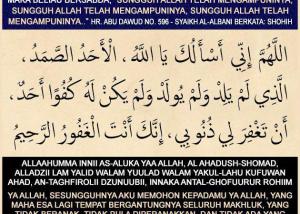 MAKA BELIAU BERSABDA, "SUNGGUH ALLAH TELAH MENGAMPUNINYA,
SUNGGUH ALLAH TELAH MENGAMPUNINYA, SUNGGUH ALLAH TELAH
MENGAMPUNINYA.." HR. ABU DAWUD NO. 596 - SYAIKH AL-ALBANI BERKATA: SHOHIH
اَللَّهُمَّ إِنِّي أَسْأَلُكَ يَا اللَّهُ ، الْأَحَدُ الصَّمَدُ ،
الَّذِي لَمْ يَلِدْ وَلَمْ يُولَدْ وَلَمْ يَكُنْ لَهُ كُفُوًا أَحَدٌ ،
أَنْ تَغْفِرَ لِي ذُنُوبِي ، إِنَّكَ أَنْتَ الْغَفُورُ الرَّحِيمُ
ALLAAHUMMA INNII AS-ALUKA YAA ALLAH, AL AHADUSH-SHOMAD,
ALLADZII LAM YALID WALAM YUULAD WALAM YAKUL-LAHU KUFUWAN
AHAD, AN-TAGHFIROLII DZUNUUBII, INNAKA ANTAL-GHOFUUROR ROHIIM
YA ALLAH, SESUNGGUHNYA AKU MEMOHON KEPADAMU YA ALLAH, YANG
MAHA ESA LAGI TEMPAT BERGANTUNGNYA SELURUH MAKHLUK, YANG
TIDAK BERANAK, TIDAK PULA DIPERANAKKAN, DAN TIDAK ADA YANG